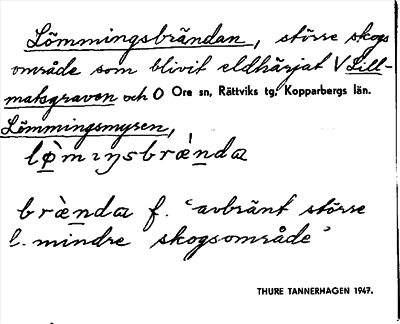 Lömmingsbrändan, större skogs
område som blivit eldhärjat V Lill-
matsgraven och O Ore sn, Rättviks tg, Kopparbergs län.
Lömmingsmyren,
lø̀mıŋsbrὲnda
brὲnda f. 'avbränt större
l. mindre skogsområde'
THURE TANNERHAGEN 1947.